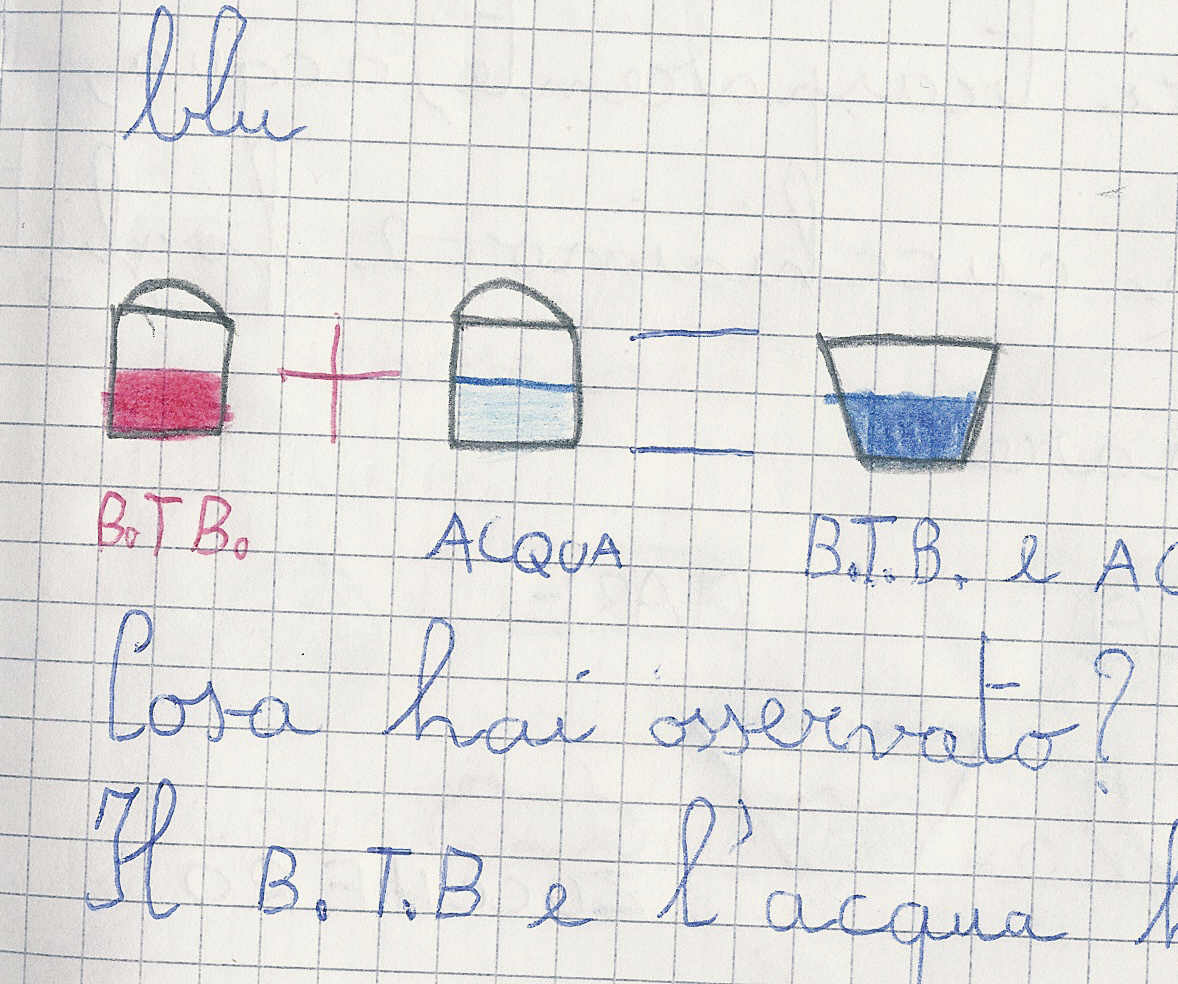 blu
B.T B. ACQUA B.T.B. e AC
Cosa hai osservato?
Il B.T.B e l'acqua h